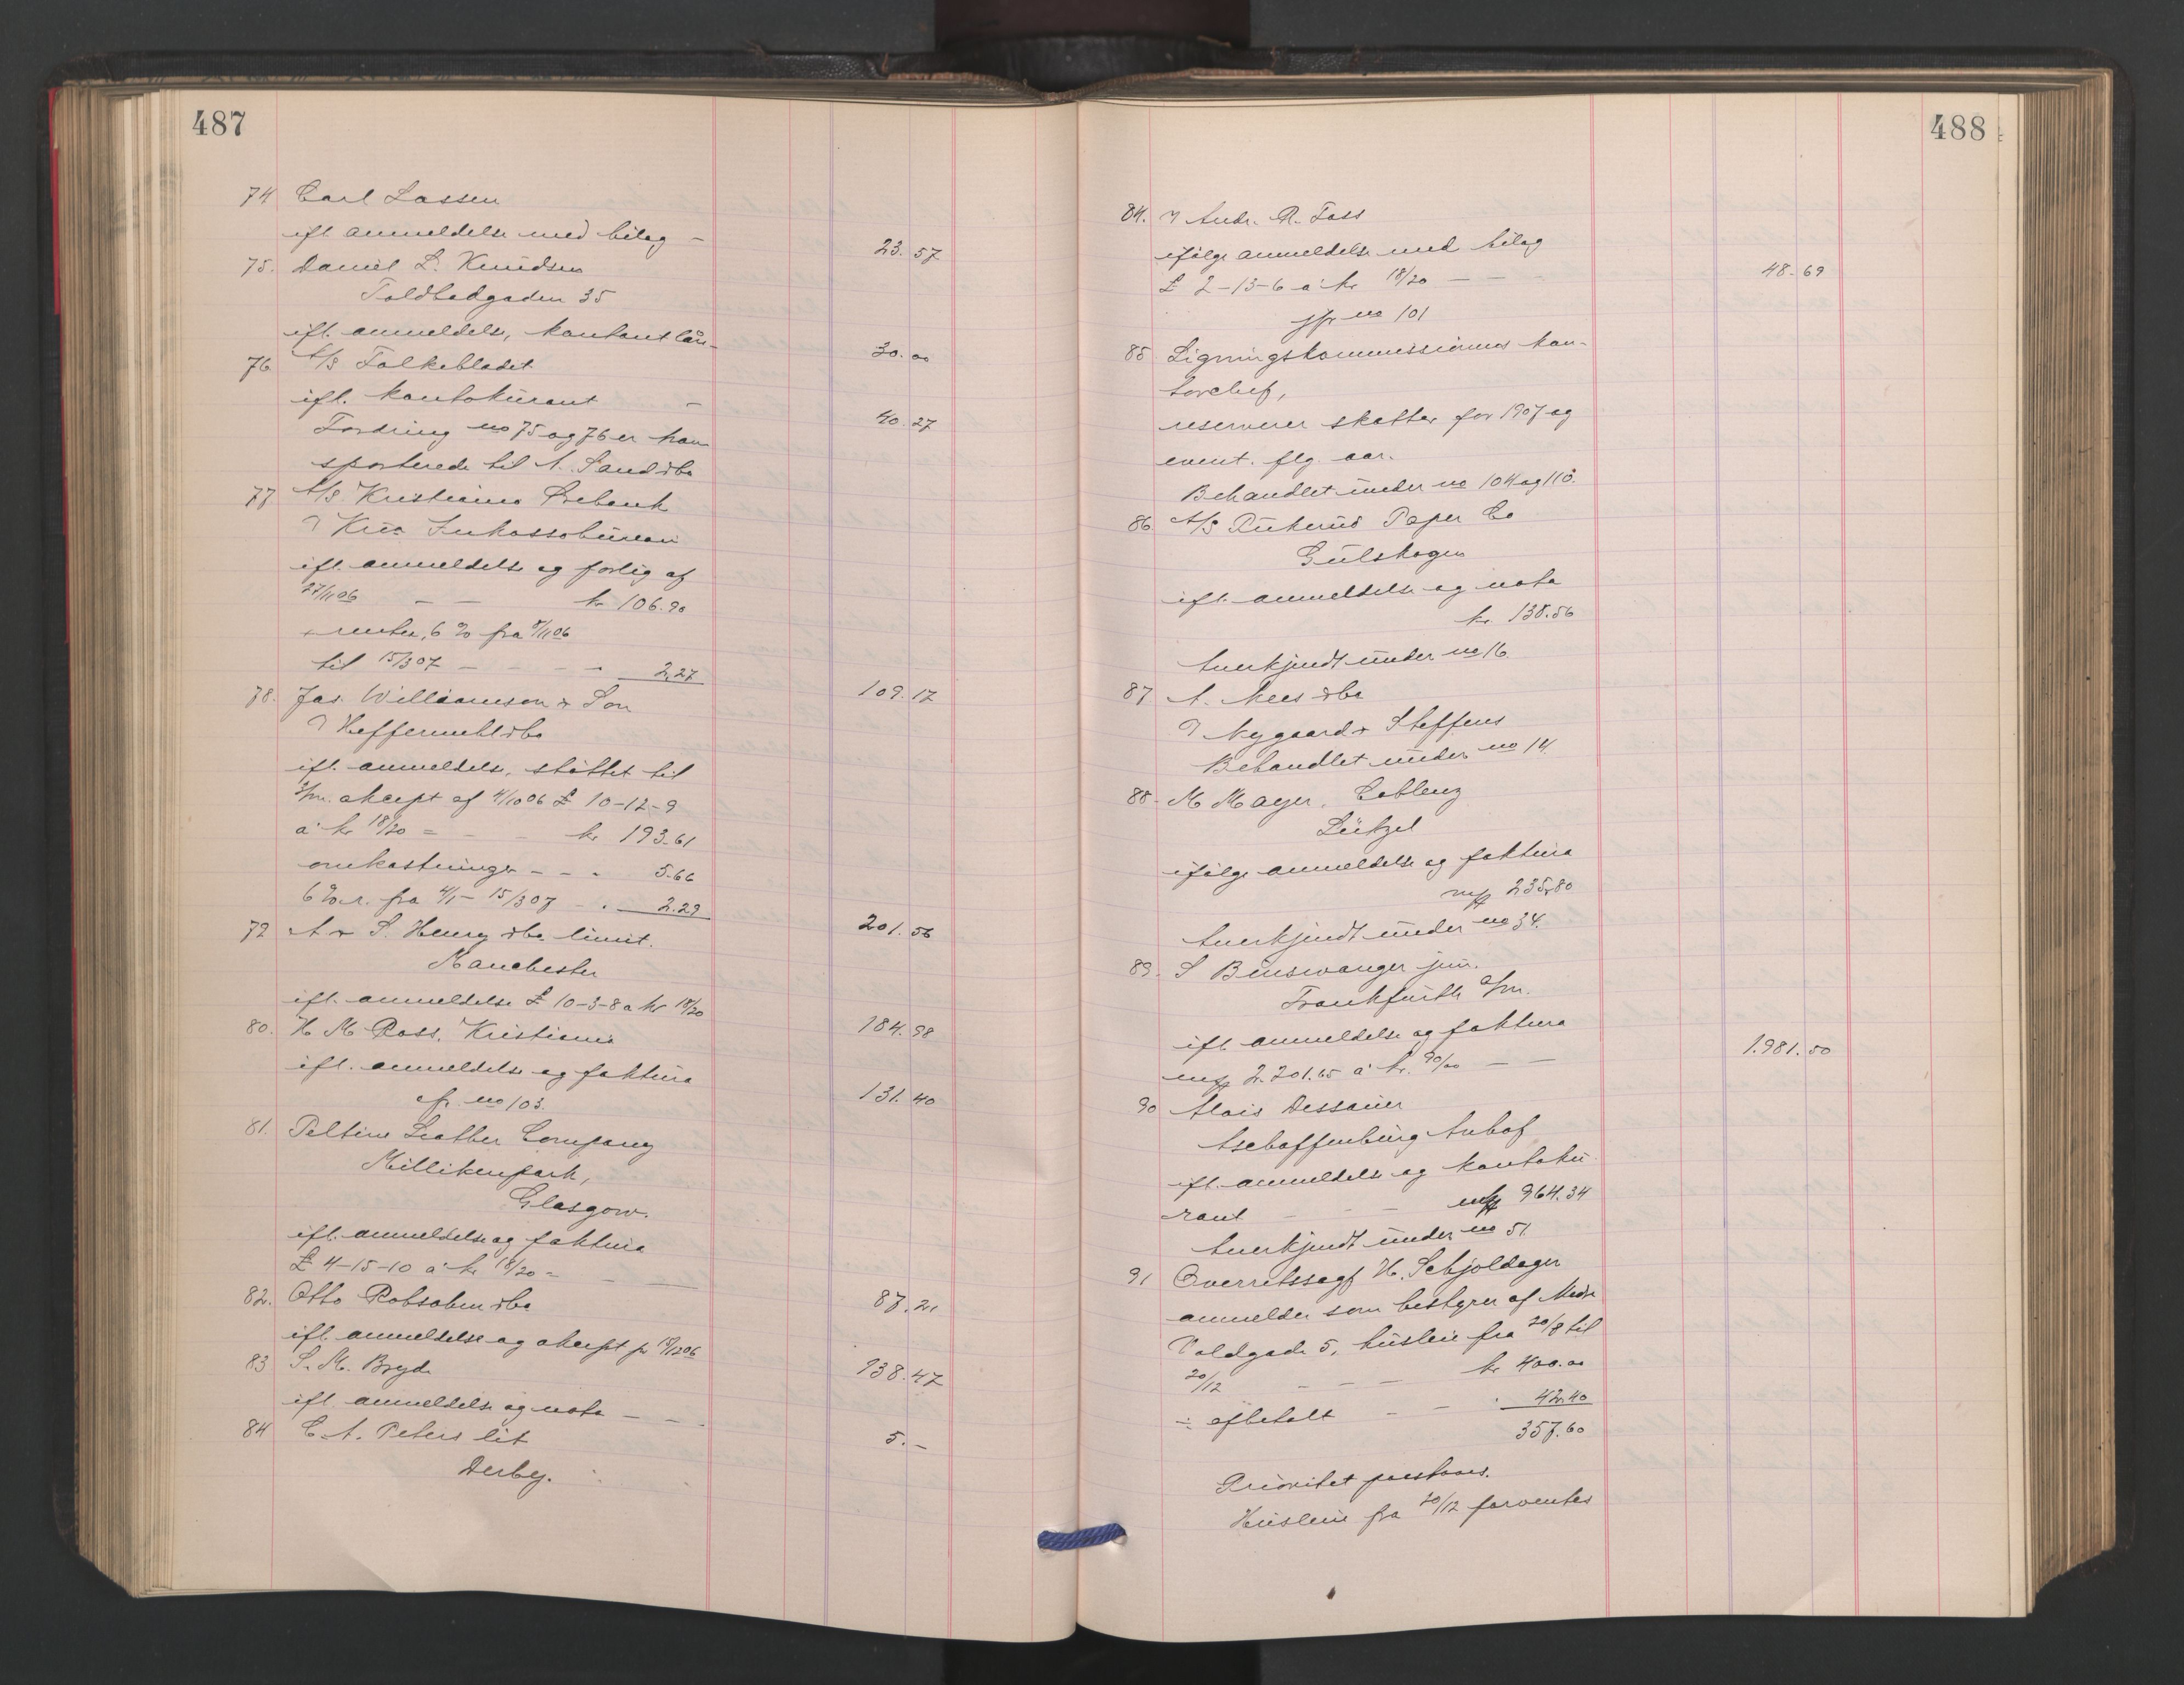 487
74 Carl Lassen
ifl anmeldelse med bilag - 23.57
75. Daniel L. Knudsen
Toldbodgaden 35
ifl. anmeldelse, kontant lån - 30.00
76 A/S Folkebladet
ifl. kontokurant - 40.27
Fordring no 75 og 76 er tran-
sporterede til A. Sand & Co
77 A/S Kristiania Bebank
v Kra Inkassobureau
ifl. anmeldelse og forlig af
27/11 06 - - kr 106.90
+ renter, 6 % fra 8/11 06
til 15/3 07 - - - - 2.27
109.17
78. Jas. Williamson & Son
v Heffermehl & Co
ifl. anmeldelse, støttet til
3/m. akcept af 4/10 06 £ 10-12-9
a' kr 18/20 = - - kr 193.61
omkostninger - - - 5.66
6 % r. fra 4/1 - 15/3 07 - . 2.29
201.56
79 A & S. Henry & Co. limit.
Manchester
ifl. anmeldelse £ 10-3-8 a kr 18/20
184.98
80. H M Ross, Kristiania
ifl. anmeldelse og faktura
cfr. no 103. 131.40
81. Peltine Leather Company
Millikenpark,
Glasgow.
ifl. anmeldelse og faktura
£ 4-15-10 a' kr 18/20 = - -
87.21
82. Otto Robsahm & Co
ifl. anmeldelse og akcept pr 18/12 06
938.47
83 S. M. Bryde
ifl. anmeldelse og nota - - -
5.-
84 C. A. Peters lit
Derby.
488
84. v Andr. R. Foss
ifølge anmeldelse med bilag
£ 2-13-6 a' kr 18/20 - - - 48.69
jfr no 101
85 Ligningskommissionens kon-
torchef,
reserverer skatter for 1907 og
event. flg. aar.
Behandlet under no 104 og 110.
86 A/S Rukerud Paper Co
Gulskogen
ifl. anmeldelse og nota
kr 138.56
Anerkjendt under no 16.
87. A. Nees & Co
v Nygaard & Steffens
Behandlet under no 14.
88. M Mayer, Coblenz
Lützel
ifølge anmeldelse og faktura
mk 235.80
Anerkjendt under no 34.
89. S Binswanger jun.
Frankfurth a/m.
ifl. anmeldelse og faktura
mk 2.201.65 a' kr. 90/00 - - 1.981.50
90 Alois Dessauer
Aschaffenburg Anhof
ifl. anmeldelse og kontoku-
rant - - - mk 964.34
Anerkjendt under no 51.
91 Overretssagf H. Schjoldager
anmelder som bestyrer af Nedre
Voldgade 5, husleie fra 20/8 til
20/12 - - - kr 400.00
÷ afbetalt - - . 42.40
357.60
Prioritet paastaaes.
Husleie fra 20/12 forventes